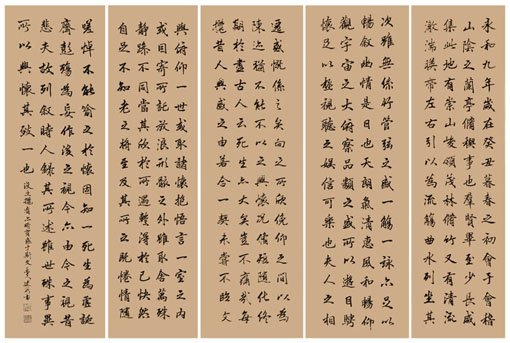 永和九年歲在癸丑暮春之初會于會稽
山陰之蘭亭脩禊事也羣賢畢至少長咸
集此地有崇山峻領茂林脩竹又有清流
激湍暎帶左右引以為流觴曲水列坐其
次雖無絲竹管弦之盛一觴一詠亦足以
暢敘幽情是日也天朗氣清惠風和暢仰
觀宇宙之大俯察品類之盛所以遊目騁
懷足以極視聽之娛信可樂也夫人之相
遷感慨係之矣向之所欣俛仰之間以為
陳迹猶不能不以之興懷況脩短隨化終
期於盡古人云死生亦大矣豈不痛哉每
攬昔人興感之由若合一契未嘗不臨文
與俯仰一世或取諸懷抱悟言一室之內
或因寄所託放浪形骸之外雖趣舍萬殊
靜躁不同當其欣於所遇暫得於己快然
自足不知老之將至及其所之既惓情隨
嗟悼不能喻之於懷固知一死生為虛誕
齊彭殤為妄作後之視今亦由今之視昔
悲夫故列敘時人錄其所述雖世殊事異
所以興懷其致一也後之攬者亦將有感於斯文